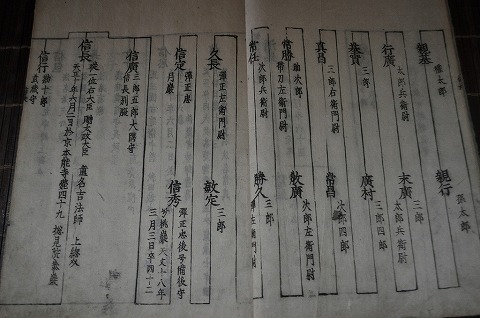 親基
權太郎
親行
孫太郎
行廣
太郎兵衛尉
末廣
太郎兵衛尉
基實
三郎
廣村
三郎四郎
真昌
三郎右衛門尉
常昌
次郎四郎
常勝
帶刀左衛門尉
敏廣
次郎左衛門尉
常任
次郎兵衛尉
勝久
三郎
左衛門尉
久長
彈正左衛門尉
敏定
三郎
信定
彈正忠
月巖
信秀
彈正忠後号備後守
桃巖 天文十八年
三月三日卒四十二
信廣
三郎五郎大隅守
信長別腹
信長
從一位右大臣 贈太政大臣 童名吉法師 上總介
天正十年六月二日於京本能寺薨四十九 總見院泰巖
信行
勘十郎
武藏守